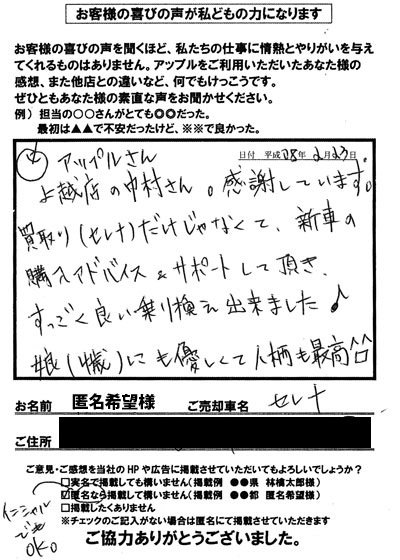 お客様の喜びの声が私どもの力になります
お客様の喜びの声を聞くほど、私たちの仕事に情熱とやりがいを与え
てくれるものはありません。アップルをご利用いただいたあなた様の
感想、また他店との違いなど、何でもけっこうです。
ぜひともあなた様の素直な声をお聞かせください。
例）担当の○○さんがとても◎◎だった。
最初は▲▲で不安だったけど、※※で良かった。
日付 平成28年2月23日
アップルさん
上越店の中村さん。感謝しています。
買取り(セレナ)だけじゃなくて、新車の
購入アドバイス&サポートして頂き、
すっごく良い乗り換え出来ました♪
娘(1歳)にも優しくて人柄も最高
お名前 匿名希望様 ご売却車名 セレナ
ご住所
ご意見・ご感想を当社のHPや広告に掲載させていただいてもよろしいでしょうか？
□実名で掲載しても構いません（掲載例 ●●県 林檎太郎様）
☑匿名なら掲載して構いません（掲載例 ●●都 匿名希望様）
□掲載したくありません
※チェックのご記入がない場合は匿名にて掲載させていただきます
イニシャル
でも
OK。
ご協力ありがとうございました。